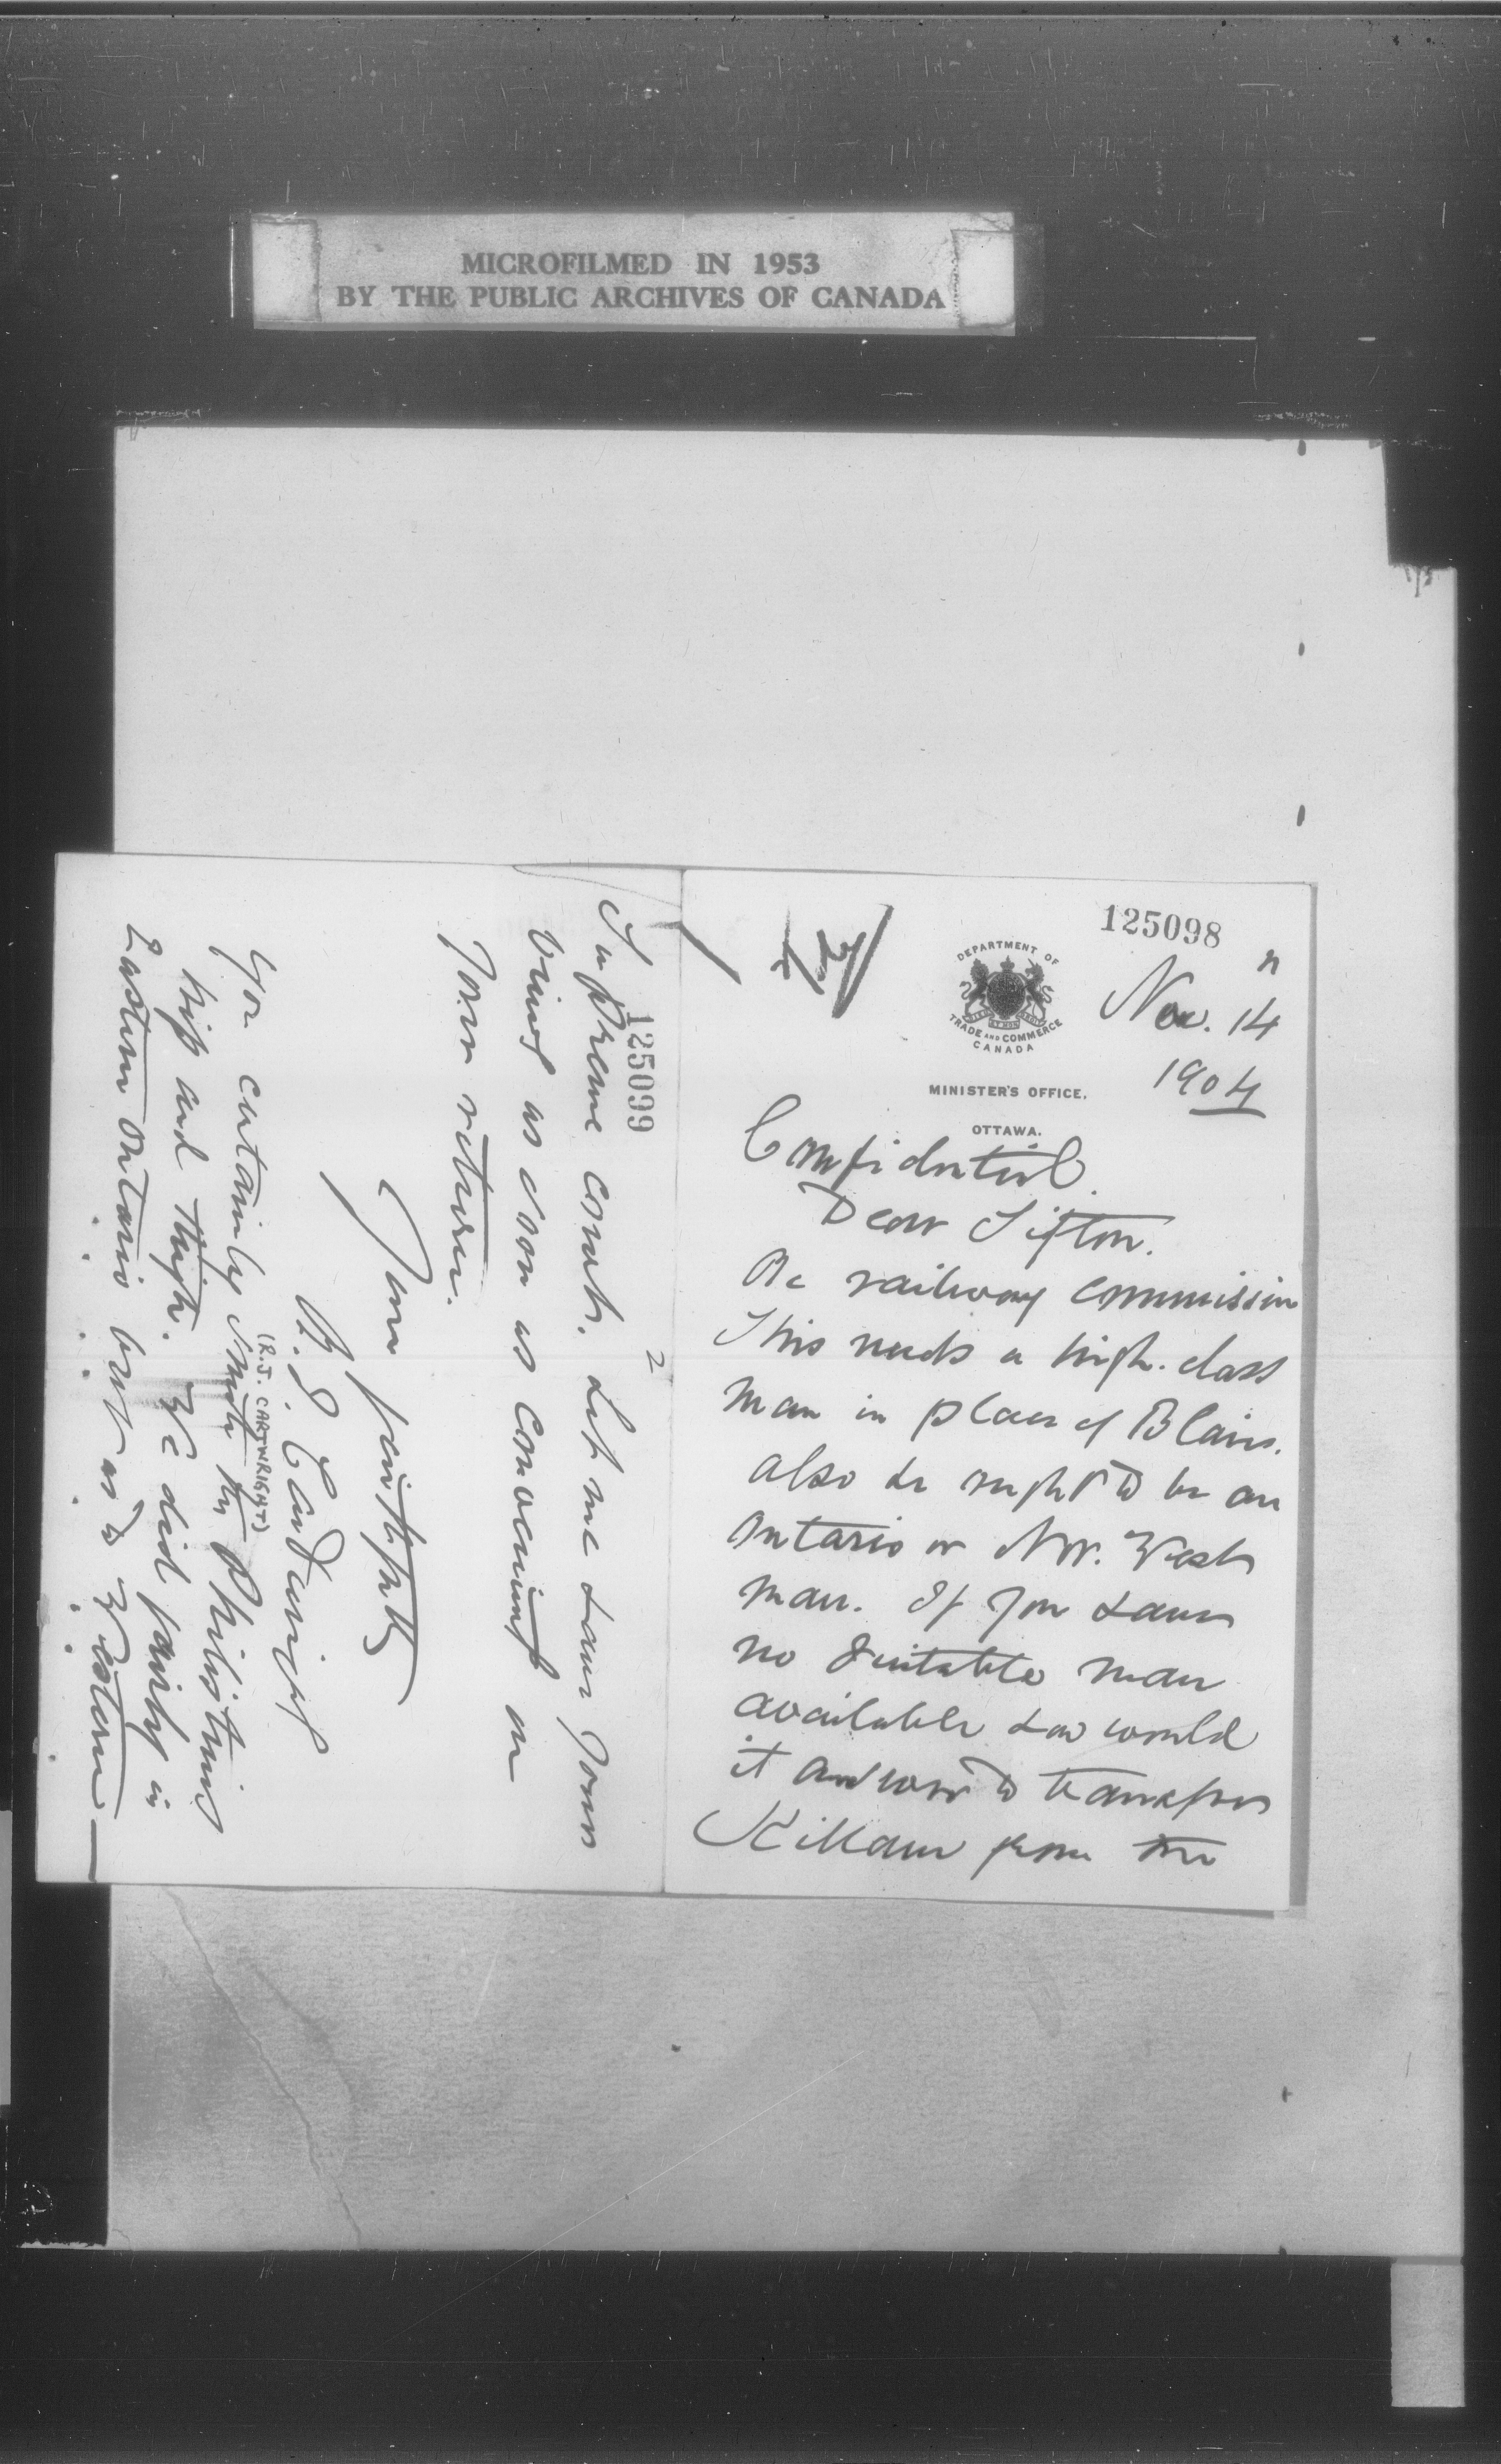 MICROFILMED IN 1953
BY THE PUBLIC ARCHIVES OF CANADA
125098
DEPARTMENT OF
TRADE AND COMMERCE
CANADA
MINISTER'S OFFICE.
OTTAWA.
Nov. 14
1904
Confidential.
Dear Sifton.
Re railway commission
This needs a high-class
man in place of Blair.
also he ought to be an
Ontario or Nor. West
man. If you have
no suitable man
available how would
it answer to transfer
Killam from the
125099
2
Supreme Court. Let me have your
views as soon as convenient on
your return.
Yours faithfully
R. J. Cartwright
(R.J. CARTWRIGHT)
You certainly smote the Philistines
hip and thigh. We did fairly in
Eastern Ontario but as to Western —